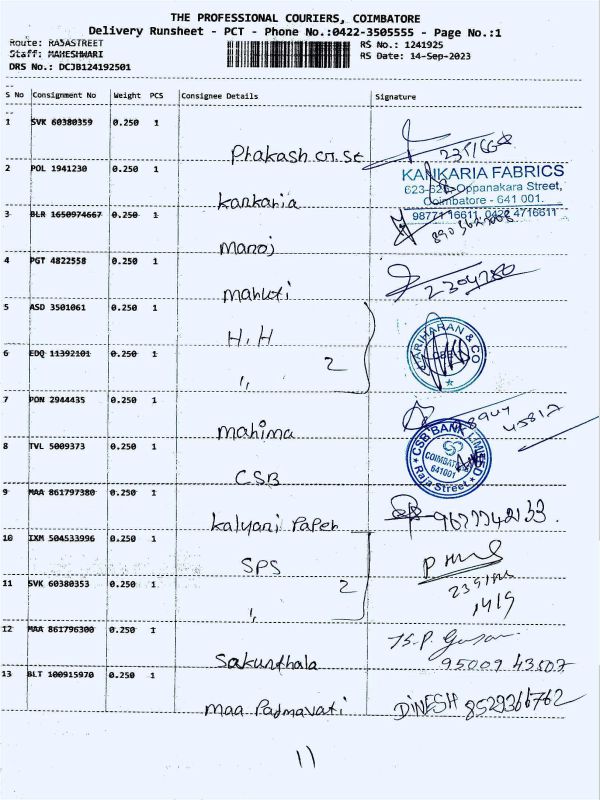 THE PROFESSIONAL COURIERS, COIMBATORE
Delivery Runsheet - PCT - Phone No.:0422-3505555 - Page No.:1
Route: RAJASTREET
Staff: MAHESHWARI
DRS No.: DCJB124192501
RS No.: 1241925
RS Date: 14-Sep-2023
S No Consignment No Weight PCS Consignee Details Signature
1 SVK 60380359 0.250 1
Prakash
2 POL 1941230 0.250 1
Kankaria
KANKARIA FABRICS
Oppanakara Street,
Coimbatore - 641 001.
98771 16611, 0422 4716611
3 BLR 1650974667 0.250 1
Manoj
4 PGT 4822558 0.250 1
2304780
5 ASD 3501061 0.250 1
H.H
6 EDQ 11392101 0.250 1
" 2
HARIHARAN & CO
7 PON 2944435 0.250 1
mahima
45817
8 TVL 5009373 0.250 1
CSB
CSB BANK LIMITED
COIMBATORE
641001
Raja Street
9 MAA 861797380 0.250 1
Kalyani Paper
9677742133.
10 IXM 504533996 0.250 1
SPS
11 SVK 60380353 0.250 1
" 2
14/9
12 MAA 861796300 0.250 1
Sakunthala
95009 43507
13 BLT 100915970 0.250 1
maa Padmavati DINESH 8529366762
11